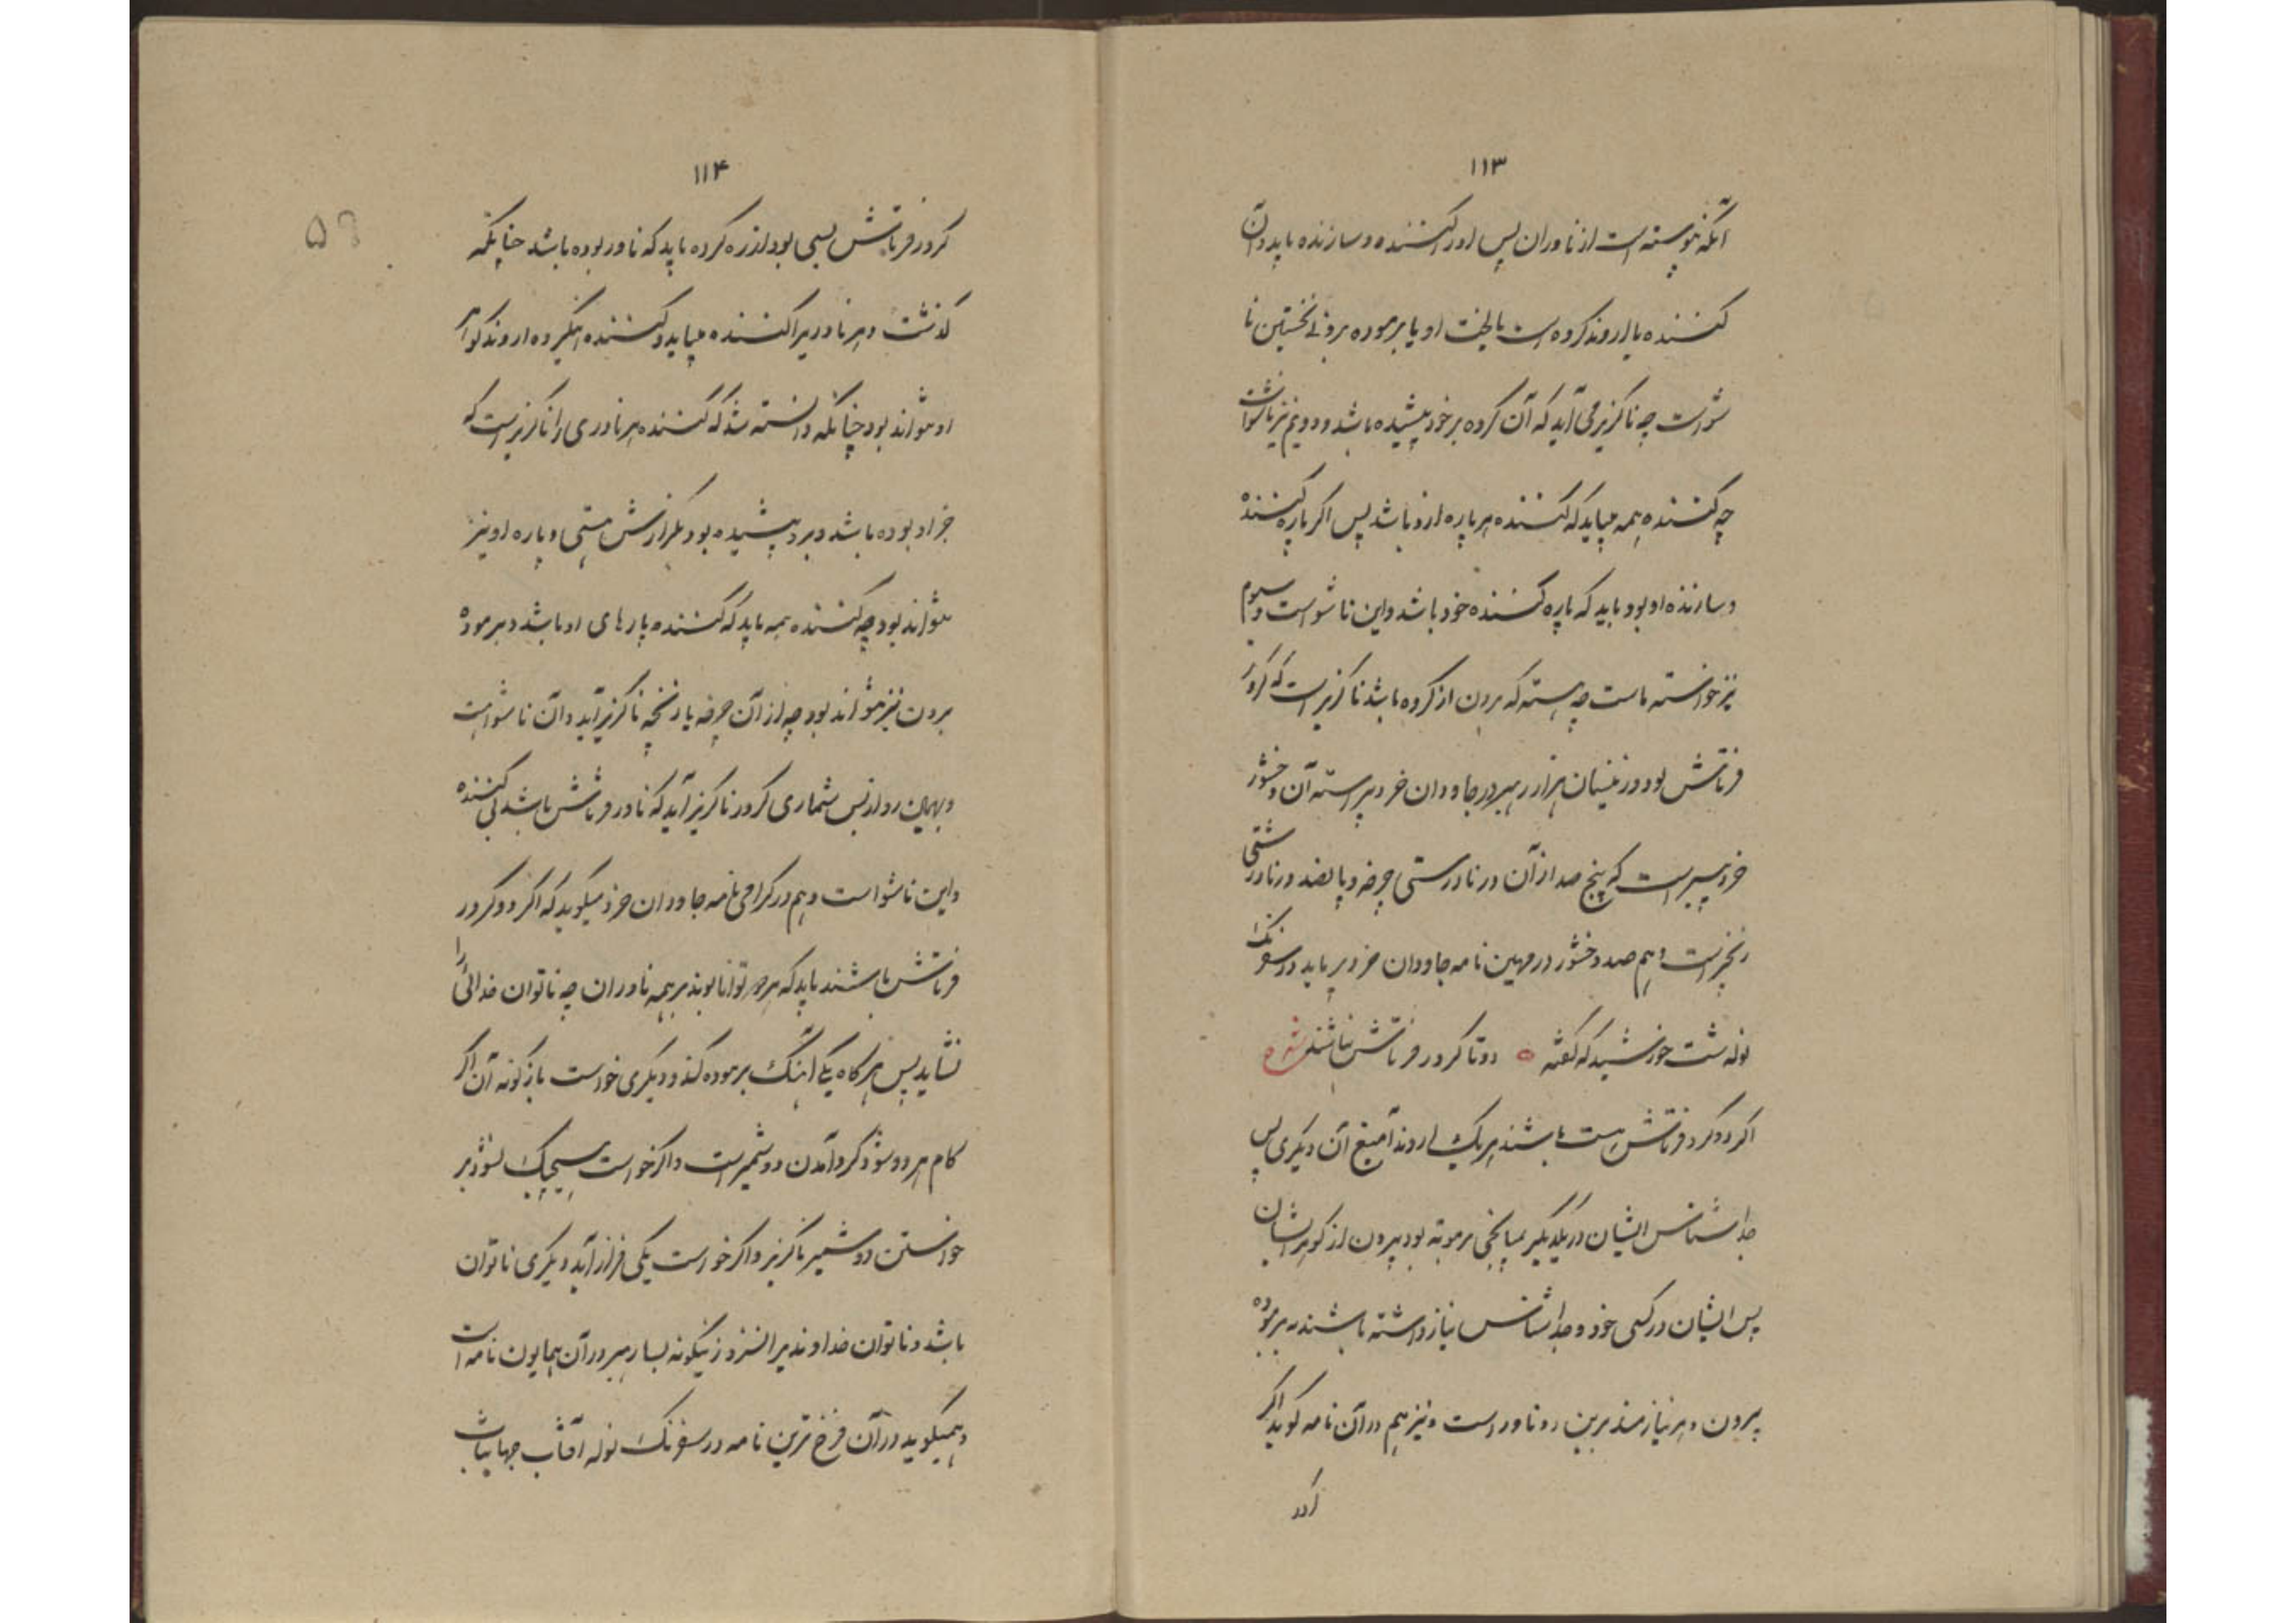 ۱۱۳
آنکه نپیوسته است از ناوران پس او را کننده و سازنده باید و آن
کننده یا اروند کروه است یا لخت او یا برموده برونی نخستین نا
شواست چه ناگزیر می آید که آن کروه بر خود پیشیده باشد و دویم نیز ناشواست
چه کننده همه میباید که کننده هر پاره از و باشد پس اگر پاره کننده
و سازنده او بود باید که پاره کننده خود باشد و این ناشواست و سیوم
نیز خواسته ماست چه هسته که برون از کروه باشد ناگزیر است که کرور
فرتاش بود و زینسان هزار رهبر در جاودان خرد پیراسته آن وخشور
خرد پیر است که پنج صد از آن در نادرستی چرخه و پانصد در نادرستی
زنخیر است و هم صد وخشور در مهین نامه جاودان خرد پیر باید در سفرنگ
نوله شت خورشید که گفته دو تا کرور فرتاش نباشند شوه
اگر دو کرور فرتاش هست باشند هر یک اروند آمیغ آن دیگری پس
جدا شناس ایشان در یکدیگر بمیانجی برموته بود بیرون از گوهر ایشان
پس ایشان در کسی خود و جدا شناس نیاز داشته باشند به برموده
بیرون و هر نیازمند برین رو ناور است و نیز هم در آن نامه گوید اگر
کرور
۱۱۴
کرور فرتاش بسی بود از ره کروه باید که ناور بوده باشد چنانکه
گذشت و هر ناور را کننده میباید و کننده اینگیروه اروند گواهر
او نتواند بود چنانکه دانسته شد که کننده هر ناوری را ناگزیر است که
جز او بوده باشد و بر و پیشیده بود بگزارش هستی و پاره او نیز
نتواند بود چه کننده همه باید که کننده پارهای او باشد و برموده
برون نیز نتواند بود چه از آن چرخه یا زنخچه ناگزیر آید و آن ناشواست
و بهمین رو از بس شماری کرور ناگزیر آید که ناور فرتاش باشد بی کننده
و این ناشواست و هم در گرامی نامه جاودان خرد میگوید که اگر دو کرور
فرتاش باشند باید که هر دو توانا بوند بر همه ناوران چه ناتوان خدائی را
نشاید پس هر گاه یکی آهنگ برموده کند و دیگری خواست بازگونه آن اگر
کام هر دو شود گرد آمدن دو شمیر است و اگر خواست هیچیک نشود بر
خواستن دو شمیر ناگزیر و اگر خواست یکی فراز آید دیگری ناتوان
باشد و ناتوان خداوندیرا نسزد زینگونه بسا رهبر در آن همایون نامه است
و همیگوید در آن فرخ ترین نامه در سفرنگ نوله آفتاب جهانتاب